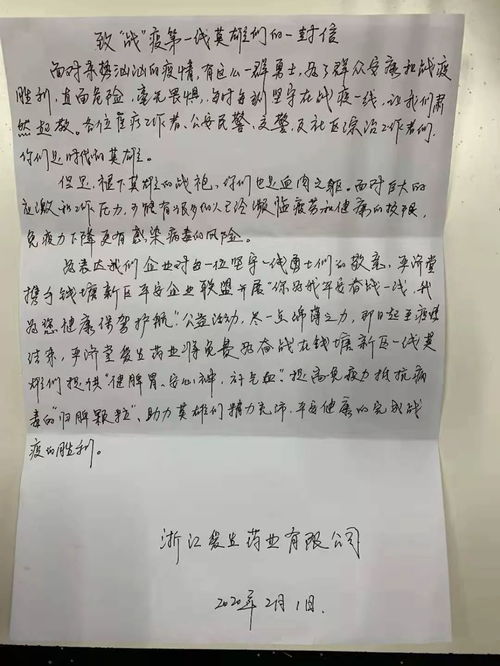 致“战”疫第一线英雄们的一封信
面对来势汹汹的疫情，有这么一群勇士，为了群众安康和战疫
胜利，直面危险，毫无畏惧，每时每刻坚守在战疫一线，让我们肃
然起敬。各位医疗工作者、公安民警、交警、及社区综治工作者们，
你们是时代的英雄。
但是，褪下英雄的战袍，你们也是血肉之躯。面对巨大的
应激和工作压力，可能有很多的人已经濒临疲劳和健康的极限，
免疫力下降更有感染病毒的风险。
为表达我们企业对每一位坚守一线勇士们的敬意，平济堂
携手钱塘新区平安企业联盟开展“你为我平安奋战一线，我
为您健康保驾护航”公益活动，尽一点绵薄之力，即日起至疫情
结束，平济堂爱生药业将免费为奋战在钱塘新区一线英
雄们提供“健脾胃、安心神、补气血”提高免疫力抵抗病
毒的“归脾颗粒”、助力英雄们精力充沛、平安健康的完成战
疫的胜利。
浙江爱生药业有限公司
2020年2月1日.